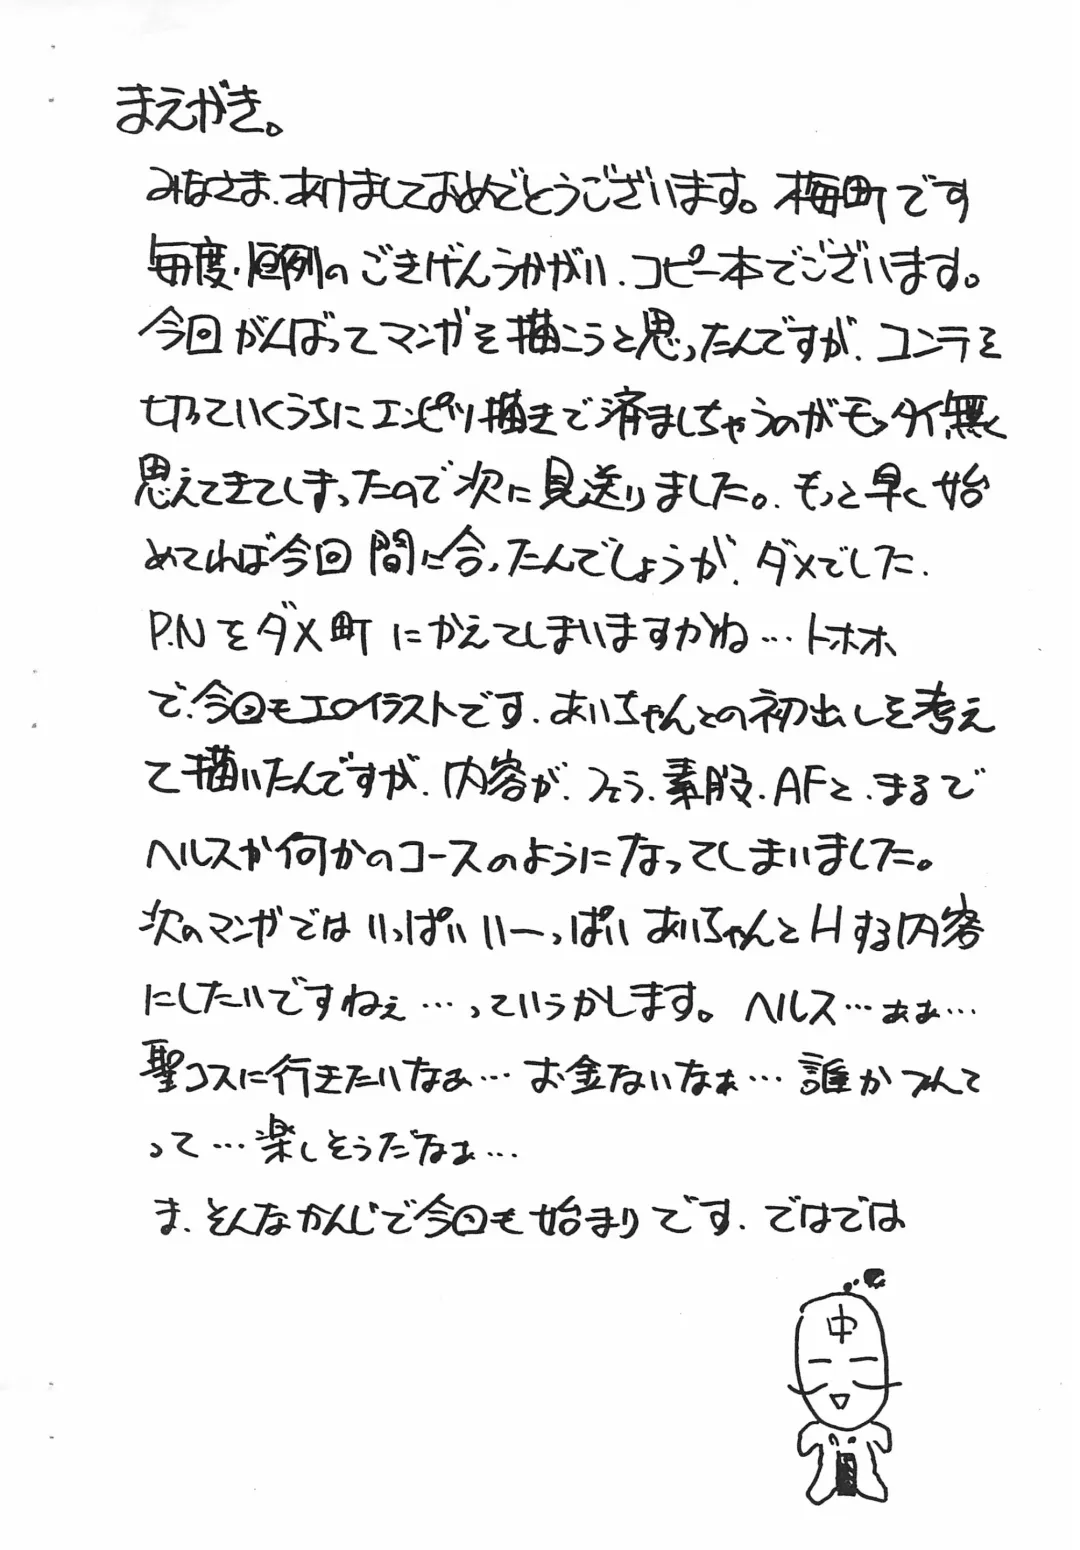 まえがき。
みなさま、あけましておめでとうございます。梅町です
毎度・恒例のごきげんうかがい、コピー本でございます。
今回がんばってマンガを描こうと思ったんですが、コンテを
切っていくうちにエンピツ描きで済ましちゃうのがモッタイ無く
思えてきてしまったので次に見送りました。もっと早く始
めてれば今回間に合ったんでしょうが、ダメでした、
P.Nをダメ町にかえてしまいますかね…トホホ
で、今回もエロイラストです、あいちゃんとの初出しを考え
て描いたんですが、内容が、フェラ、素股、AFと、まるで
ヘルスか何かのコースのようになってしまいました。
次のマンガではいっぱいいーっぱいあいちゃんとHする内容
にしたいですねぇ…っていうかします。ヘルス…ぁぁ…
聖コスに行きたいなぁ…お金ないなぁ…誰かつれて
って…楽しそうだなぁ…
ま、そんなかんじで今回も始まりです、ではでは
中